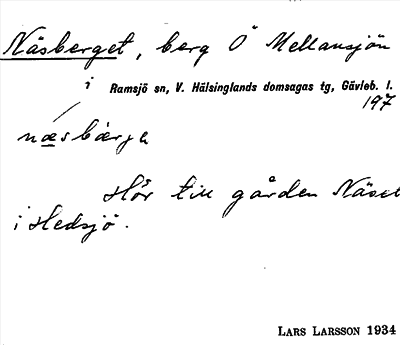 Näsberget, berg Ö Mellansjön
i Ramsjö sn, V. Hälsinglands domsagas tg, Gävleb. l.
197
næsbærjə
Hör till gården Näset
i Hedsjö.
LARS LARSSON 1934